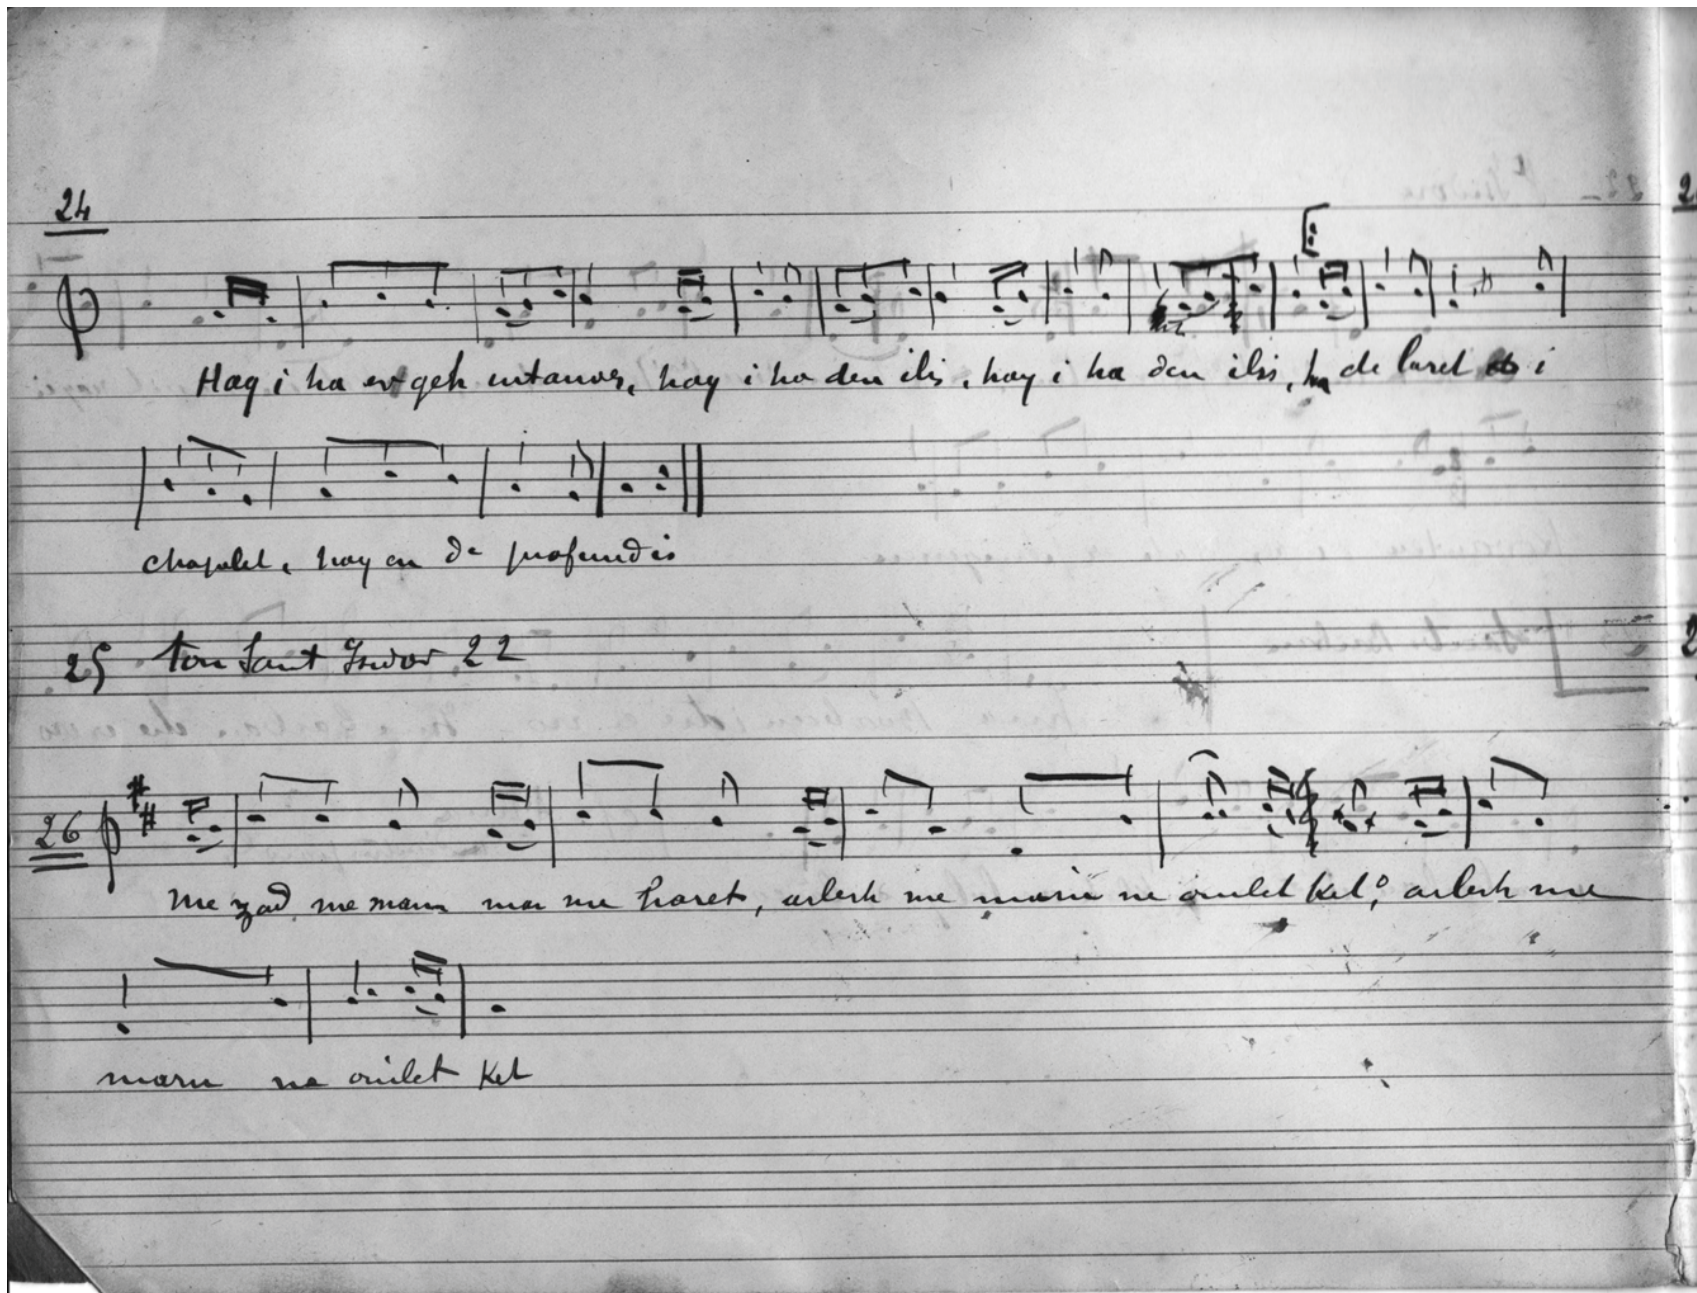 24
Hag i ha er geh intanves, hag i ha den ilis, hag i ha den ilis, ha de laret i
chapelet, hag en De profundis
25 ton Sant Isidor 22
26
me zad me mam mar me haret, arlerh me marù ne ouilet ket, arlerh me
marù ne ouilet ket